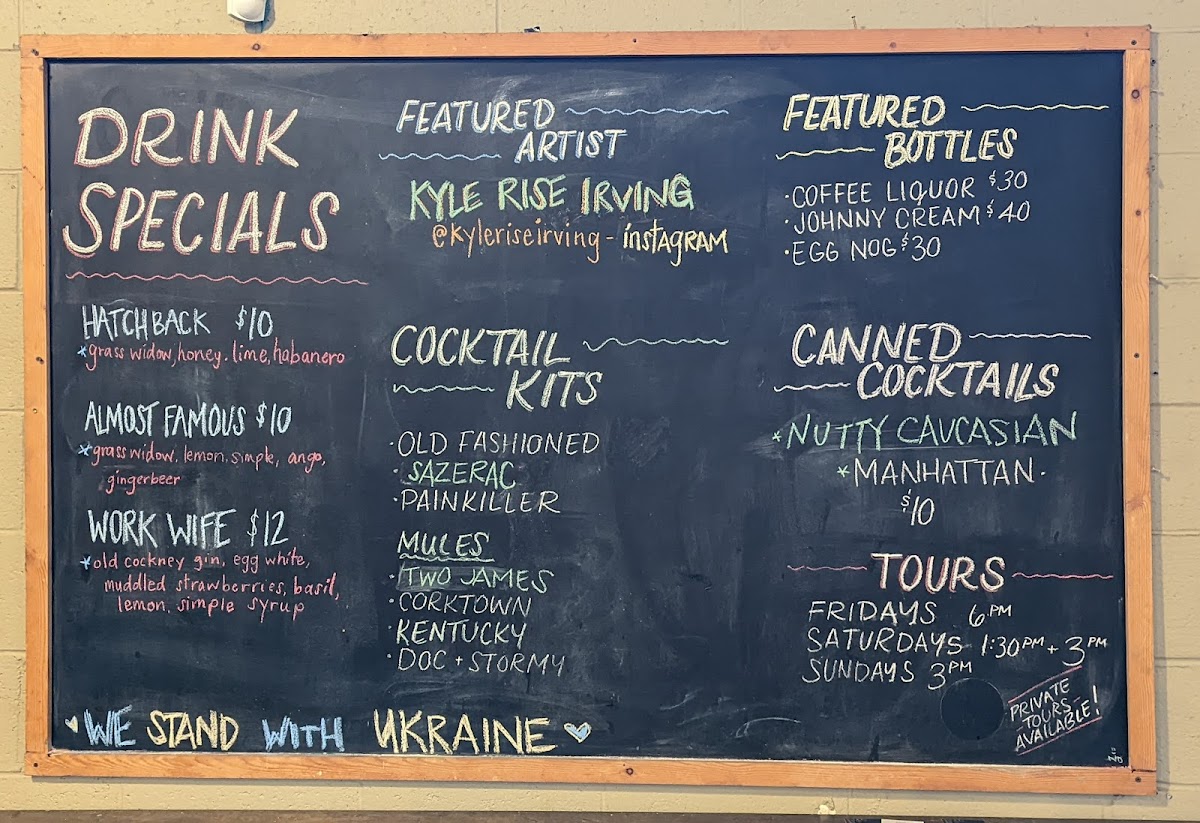 DRINK
SPECIALS
HATCHBACK $10
*grass widow, honey. lime, habanero
ALMOST FAMOUS $10
*grass widow, lemon, simple, ango,
gingerbeer
WORK WIFE $12
*old cockney gin, egg white,
muddled strawberries, basil,
lemon, simple syrup
FEATURED
ARTIST
KYLE RISE IRVING
@kyleriseirving - instagram
COCKTAIL
KITS
·OLD FASHIONED
·SAZERAC
·PAINKILLER
MULES
·TWO JAMES
·CORKTOWN
·KENTUCKY
·DOC + STORMY
FEATURED
BOTTLES
·COFFEE LIQUOR $30
·JOHNNY CREAM $40
·EGG NOG $30
CANNED
COCKTAILS
*NUTTY CAUCASIAN
*MANHATTAN·
$10
TOURS
FRIDAYS 6PM
SATURDAYS 1:30PM + 3PM
SUNDAYS 3PM
PRIVATE
TOURS
AVAILABLE!
♥WE STAND WITH UKRAINE♥